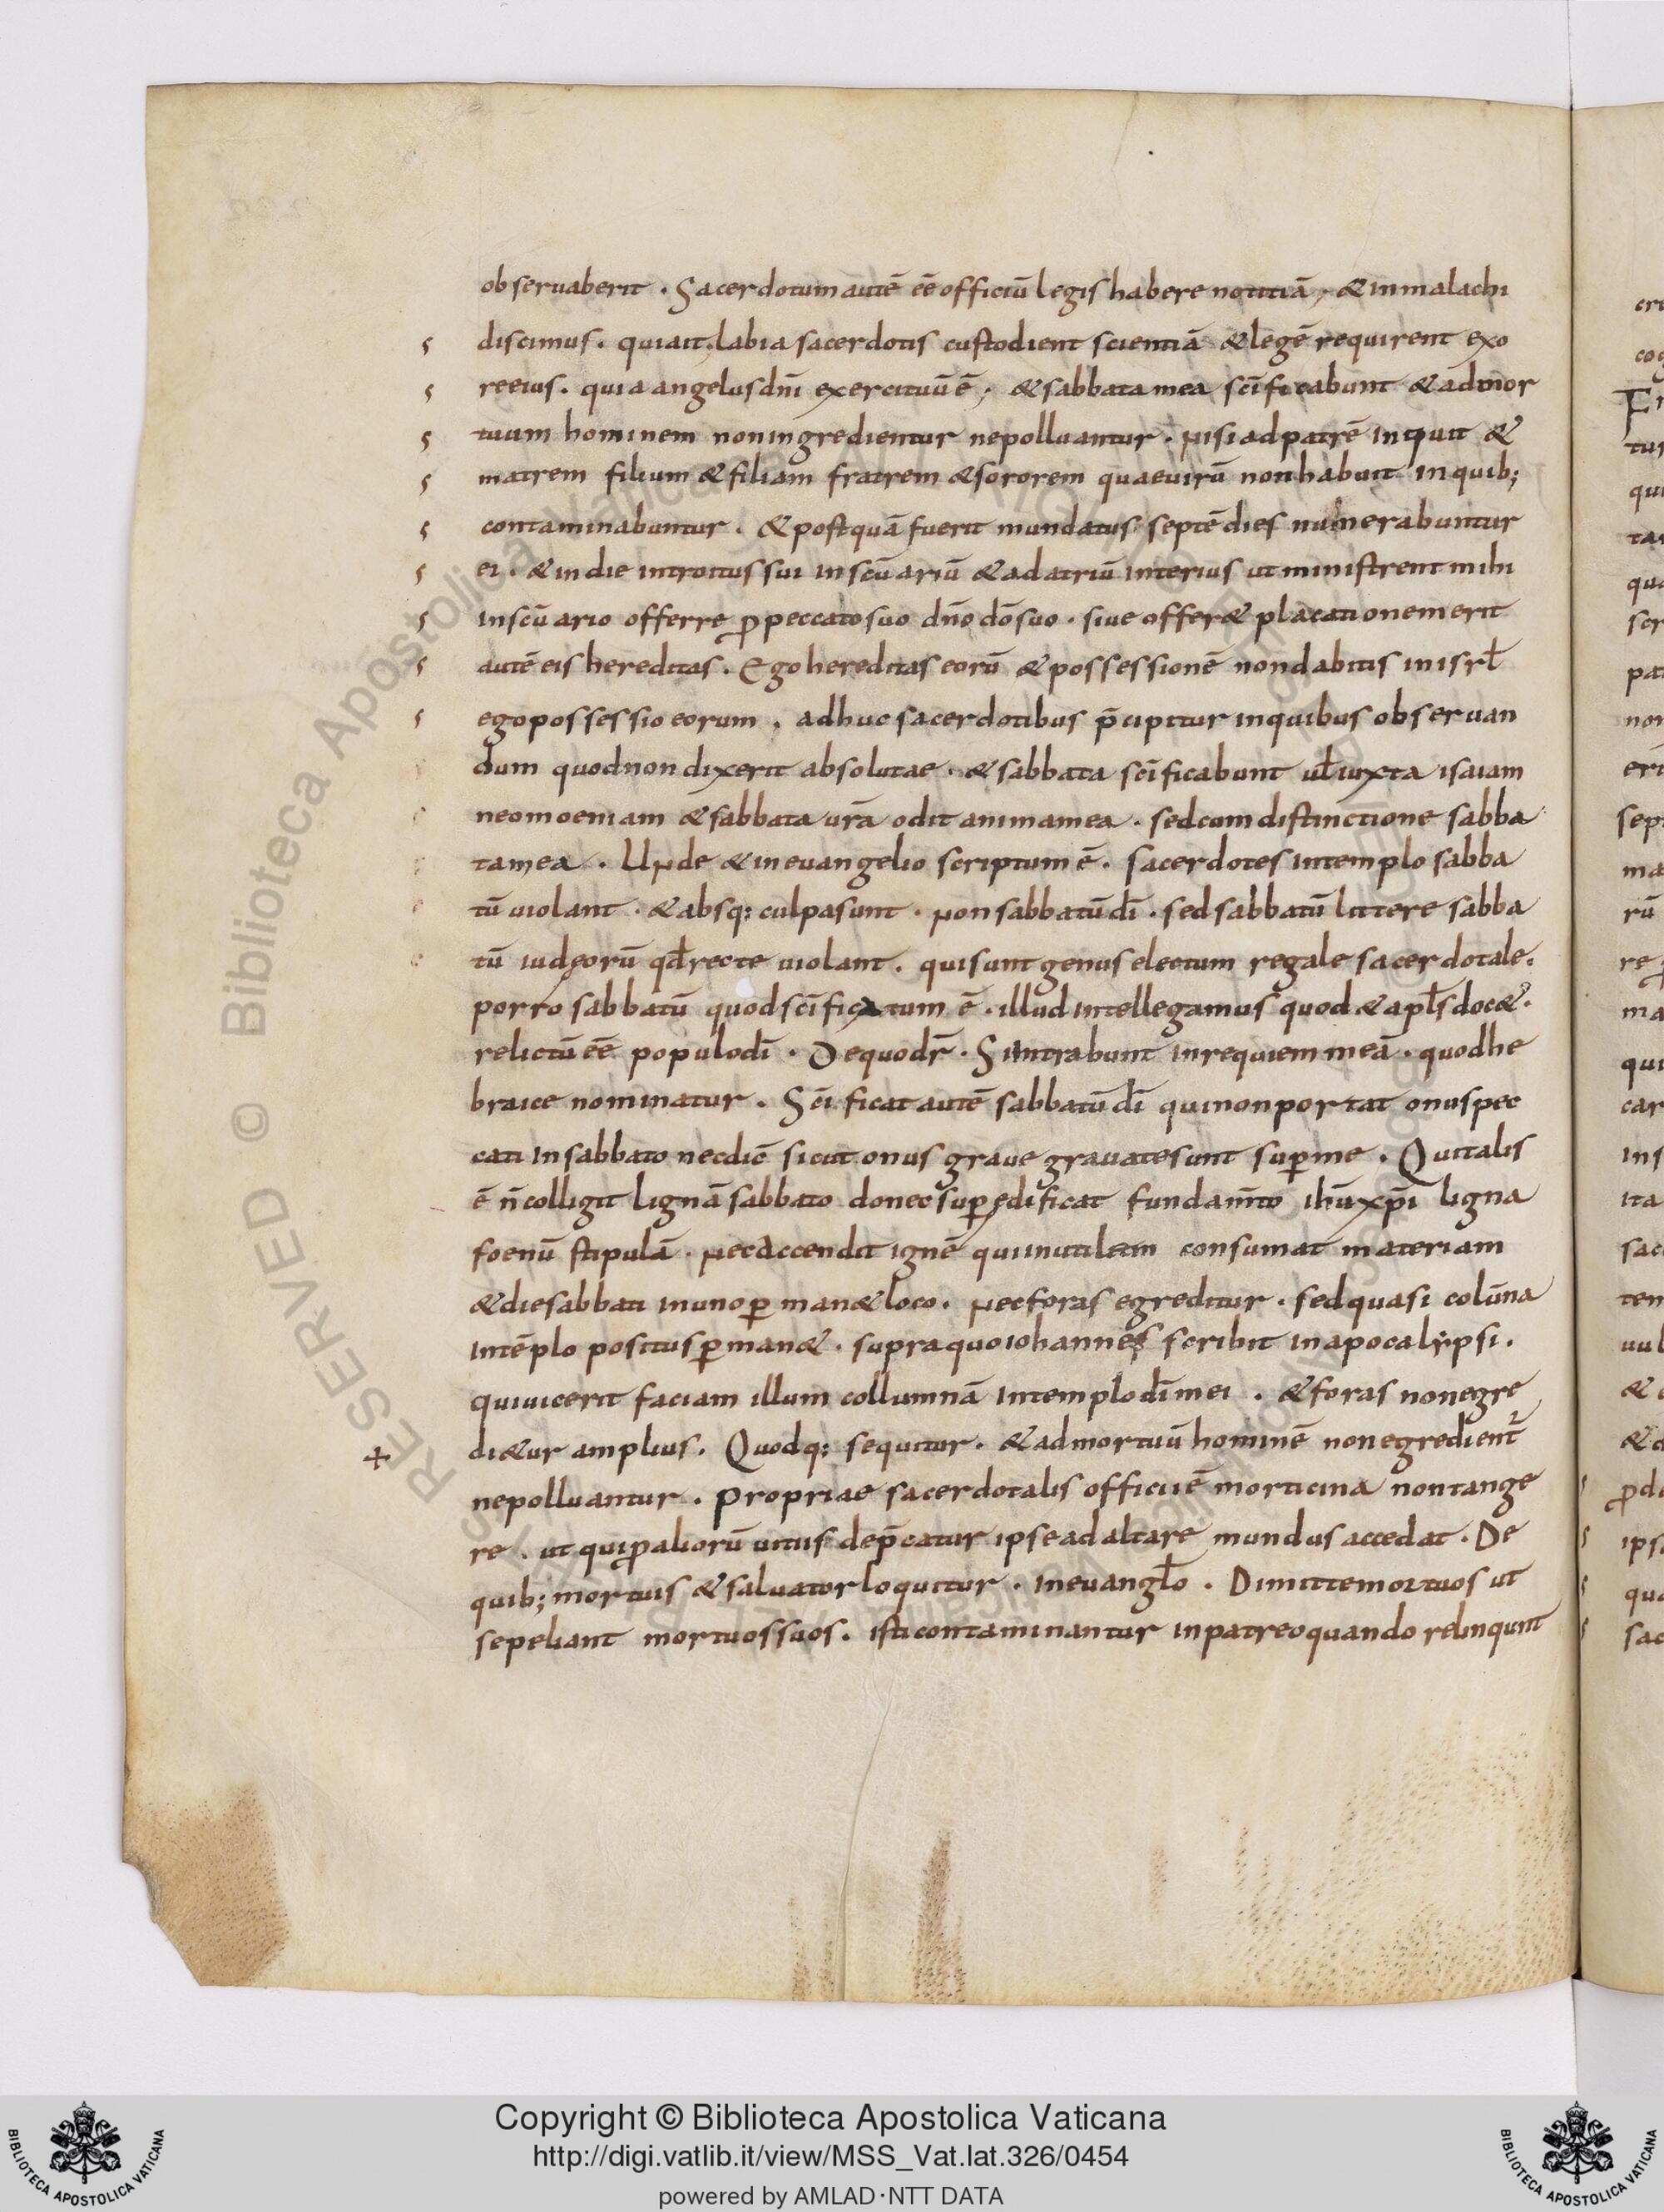 obseruaberit . Sacerdotum autē eē officiū legis habere notitiā ; & in malachi
discimus . qui ait . labia sacerdotis custodient scientiā & legē requirent exo
re eius . quia angelus dn̄i exercituū ē ; & sabbata mea sc̄ificabunt & ad mor
tuum hominem non ingredientur ne polluantur . nisi ad patrē inquit &
matrem filium & filiam fratrem & sororem quae uirū non habuit in quib;
contaminabuntur . & postquā fuerit mundatus septē dies numerabuntur
ei . & in die introitus sui in sc̄uariū & ad atriū interius ut ministrent mihi
in sc̄uario offerre ꝓ peccato suo dn̄o dō suo . siue offer& placationem erit
autē eis hereditas . Ego hereditas eorū & possessionē non dabitis in isrƚ
ego possessio eorum . adhuc sacerdotibus p̄cipitur in quibus obseruan
dum quod non dixerit absolutae . & sabbata sc̄ificabunt uƚ iuxta isaiam
neomoeniam & sabbata ur̄a odit anima mea . sed cum distinctione sabba
ta mea . Unde & in euangelio scriptum ē . sacerdotes in templo sabba
tū uiolant . & absq: culpa sunt . non sabbatū dī . sed sabbatū littere sabba
tū iudęorū qd̄ recte uiolant . qui sunt genus electum regale sacerdotale .
porro sabbatū quod sc̄ificatum ē . illud intellegamus quod & apƚs doc& .
relictū eē populo dī . De quo dr̄ . Si intrabunt in requiem meā . quod he
braice nominatur . Sc̄ificat autē sabbatū dī qui non portat onus pec
cati in sabbato nec dic̄ sicut onus graue grauate sunt suꝑ me . Qui talis
ē n̄ colligit lignā sabbato donec suꝑ ędificat fundam̄to ih̄u xp̄i ligna
foenū stipulā . nec accendit ignē qui inutilem consumat materiam
& die sabbati in uno ꝑman& loco . nec foras egreditur . sed quasi colūna
in tēplo positus ꝑman& . supra quo iohannes scribit in apocalipsi .
qui uicerit faciam illum collumnā in templo dī mei . & foras non egre
di&ur amplius . Quodq: sequitur . & ad mortuū hominē non egredient̄
ne polluantur . Propriae sacerdotalis officii ē morticina non tange
re . ut qui ꝓ aliorū uitiis dep̄catur ipse ad altare mundus accedat . De
quib; mortuis & saluator loquitur . in euangƚo . Dimitte mortuos ut
sepeliant mortuos suos . isti contaminantur in patre o quando relinqunt
Copyright © Biblioteca Apostolica Vaticana
http://digi.vatlib.it/view/MSS_Vat.lat.326/0454
powered by AMLAD·NTT DATA